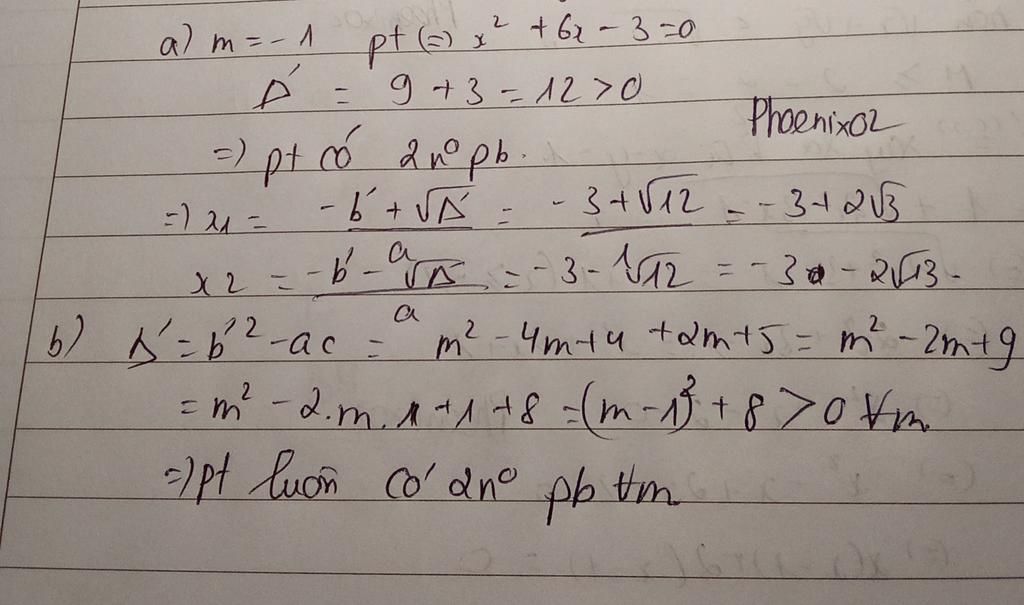 a) m = -1 pt (=) x² + 6x - 3 = 0
Δ' = 9 + 3 = 12 > 0
Phoenix02
=) pt có 2 n⁰ pb.
=) x1 = (-b' + √Δ')/a = (-3 + √12)/1 = -3 + 2√3
x2 = (-b' - √Δ')/a = -3 - √12 = -3 - 2√3.
b) Δ' = b'² - ac = m² - 4m + 4 + 2m + 5 = m² - 2m + 9
= m² - 2.m.1 + 1 + 8 = (m - 1)² + 8 > 0 ∀m
=) pt luôn có 2 n⁰ pb ∀m